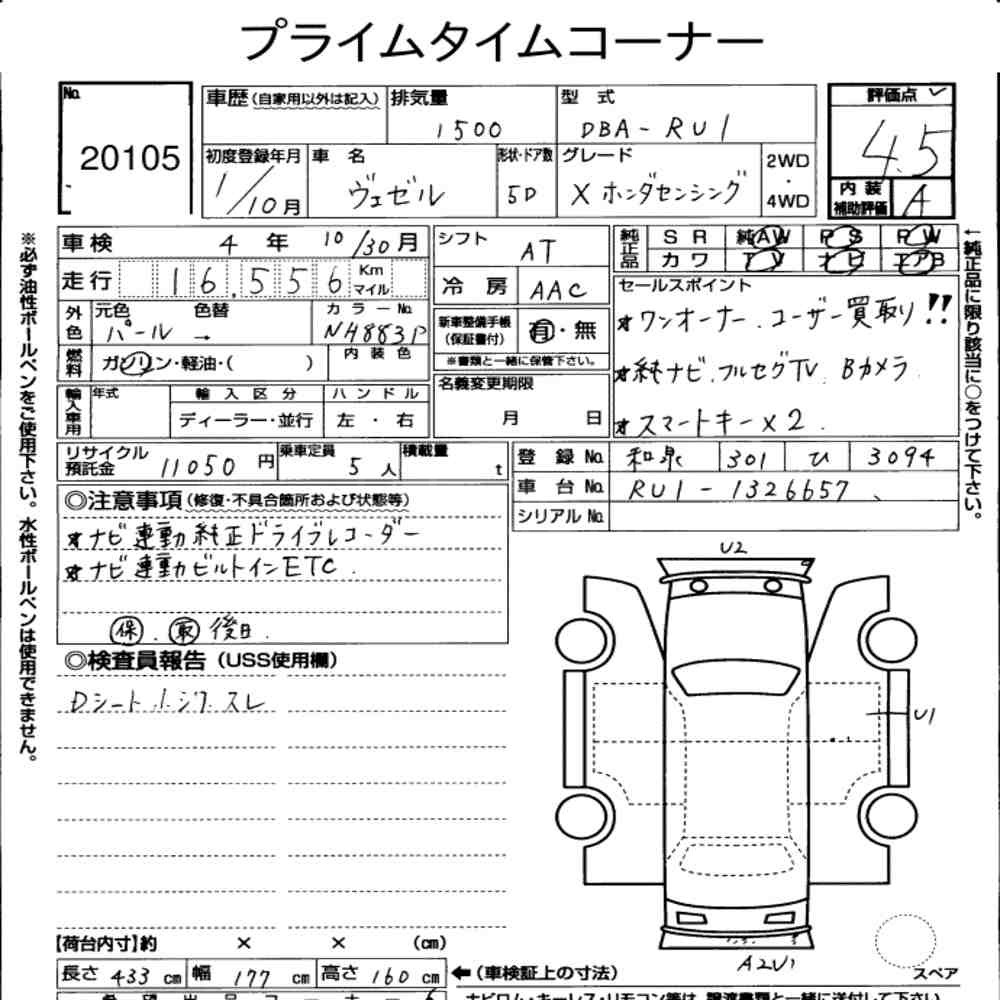 プライムタイムコーナー
No. 20105
車歴(自家用以外は記入)
排気量 1500
型式 DBA-RU1
評価点 4.5
内装補助評価 A
初度登録年月 1/10月
車名 ヴェゼル
形状・ドア数 5D
グレード X ホンダセンシング
2WD・4WD
※必ず油性ボールペンをご使用下さい。水性ボールペンは使用できません。
車検 4年 10/30月
走行 16,556 Km マイル
外色 元色 パール 色替 →
カラーNo. NH883P
燃料 ガソリン・軽油・( )
内装色
輸入車用 年式
輸入区分 ディーラー・並行
ハンドル 左・右
シフト AT
冷房 AAC
新車整備手帳(保証書付) 有・無
※書類と一緒に保管下さい。
名義変更期限 月 日
純正品 SR 純AW PS PW
カワ TV ナビ エアB
セールスポイント
★ワンオーナー、ユーザー買取り!!
★純ナビ、フルセグTV、Bカメラ
★スマートキー×2.
←純正品に限り該当に○をつけて下さい。
リサイクル預託金 11050円
乗車定員 5人
積載量 t
登録No. 和泉 301 ひ 3094
車台No. RU1-1326657
シリアルNo.
◎注意事項(修復・不具合箇所および状態等)
★ナビ連動純正ドライブレコーダー
★ナビ連動ビルトインETC.
保.取後日.
◎検査員報告(USS使用欄)
Dシート スレ
U2
U1
A2U1
スペア
【荷台内寸】約 × × (cm)
長さ 433 cm 幅 177 cm 高さ 160 cm
←(車検証上の寸法)